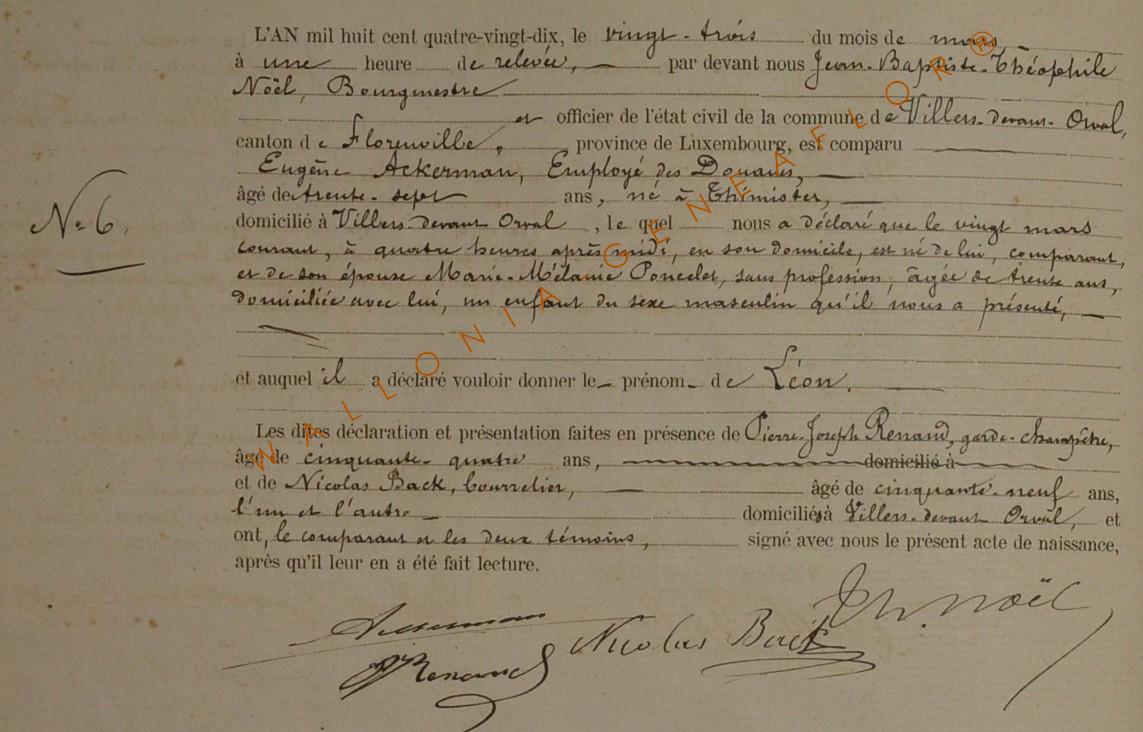 L'AN mil huit cent quatre-vingt-dix, le vingt-trois du mois de mars
à une heure de relevée, par devant nous Jean-Baptiste-Théophile
Noël, Bourgmestre
et officier de l'état civil de la commune de Villers-devant-Orval,
canton de Florenville, province de Luxembourg, est comparu
Eugène Ackerman, Employé des Douanes,
âgé de trente-sept ans, né à Thimister,
N° 6.
domicilié à Villers-devant Orval, le quel nous a déclaré que le vingt mars
courant, à quatre heures après midi, en son domicile, est né de lui, comparant,
et de son épouse Marie-Mélanie Poncelet, sans profession, âgée de trente ans,
domiciliée avec lui, un enfant du sexe masculin qu'il nous a présenté,
et auquel il a déclaré vouloir donner le prénom de Léon.
Les dites déclaration et présentation faites en présence de Pierre-Joseph Renaud, garde-champêtre,
âgé de cinquante-quatre ans, domicilié à
et de Nicolas Back, bourrelier, âgé de cinquante-neuf ans,
l'un et l'autre domiciliés à Villers-devant Orval, et
ont, le comparant et les deux témoins, signé avec nous le présent acte de naissance,
après qu'il leur en a été fait lecture.
Ackerman
PJ Renaud
Nicolas Back
Th. Noël
WALLONIA GENEAFLOR ®